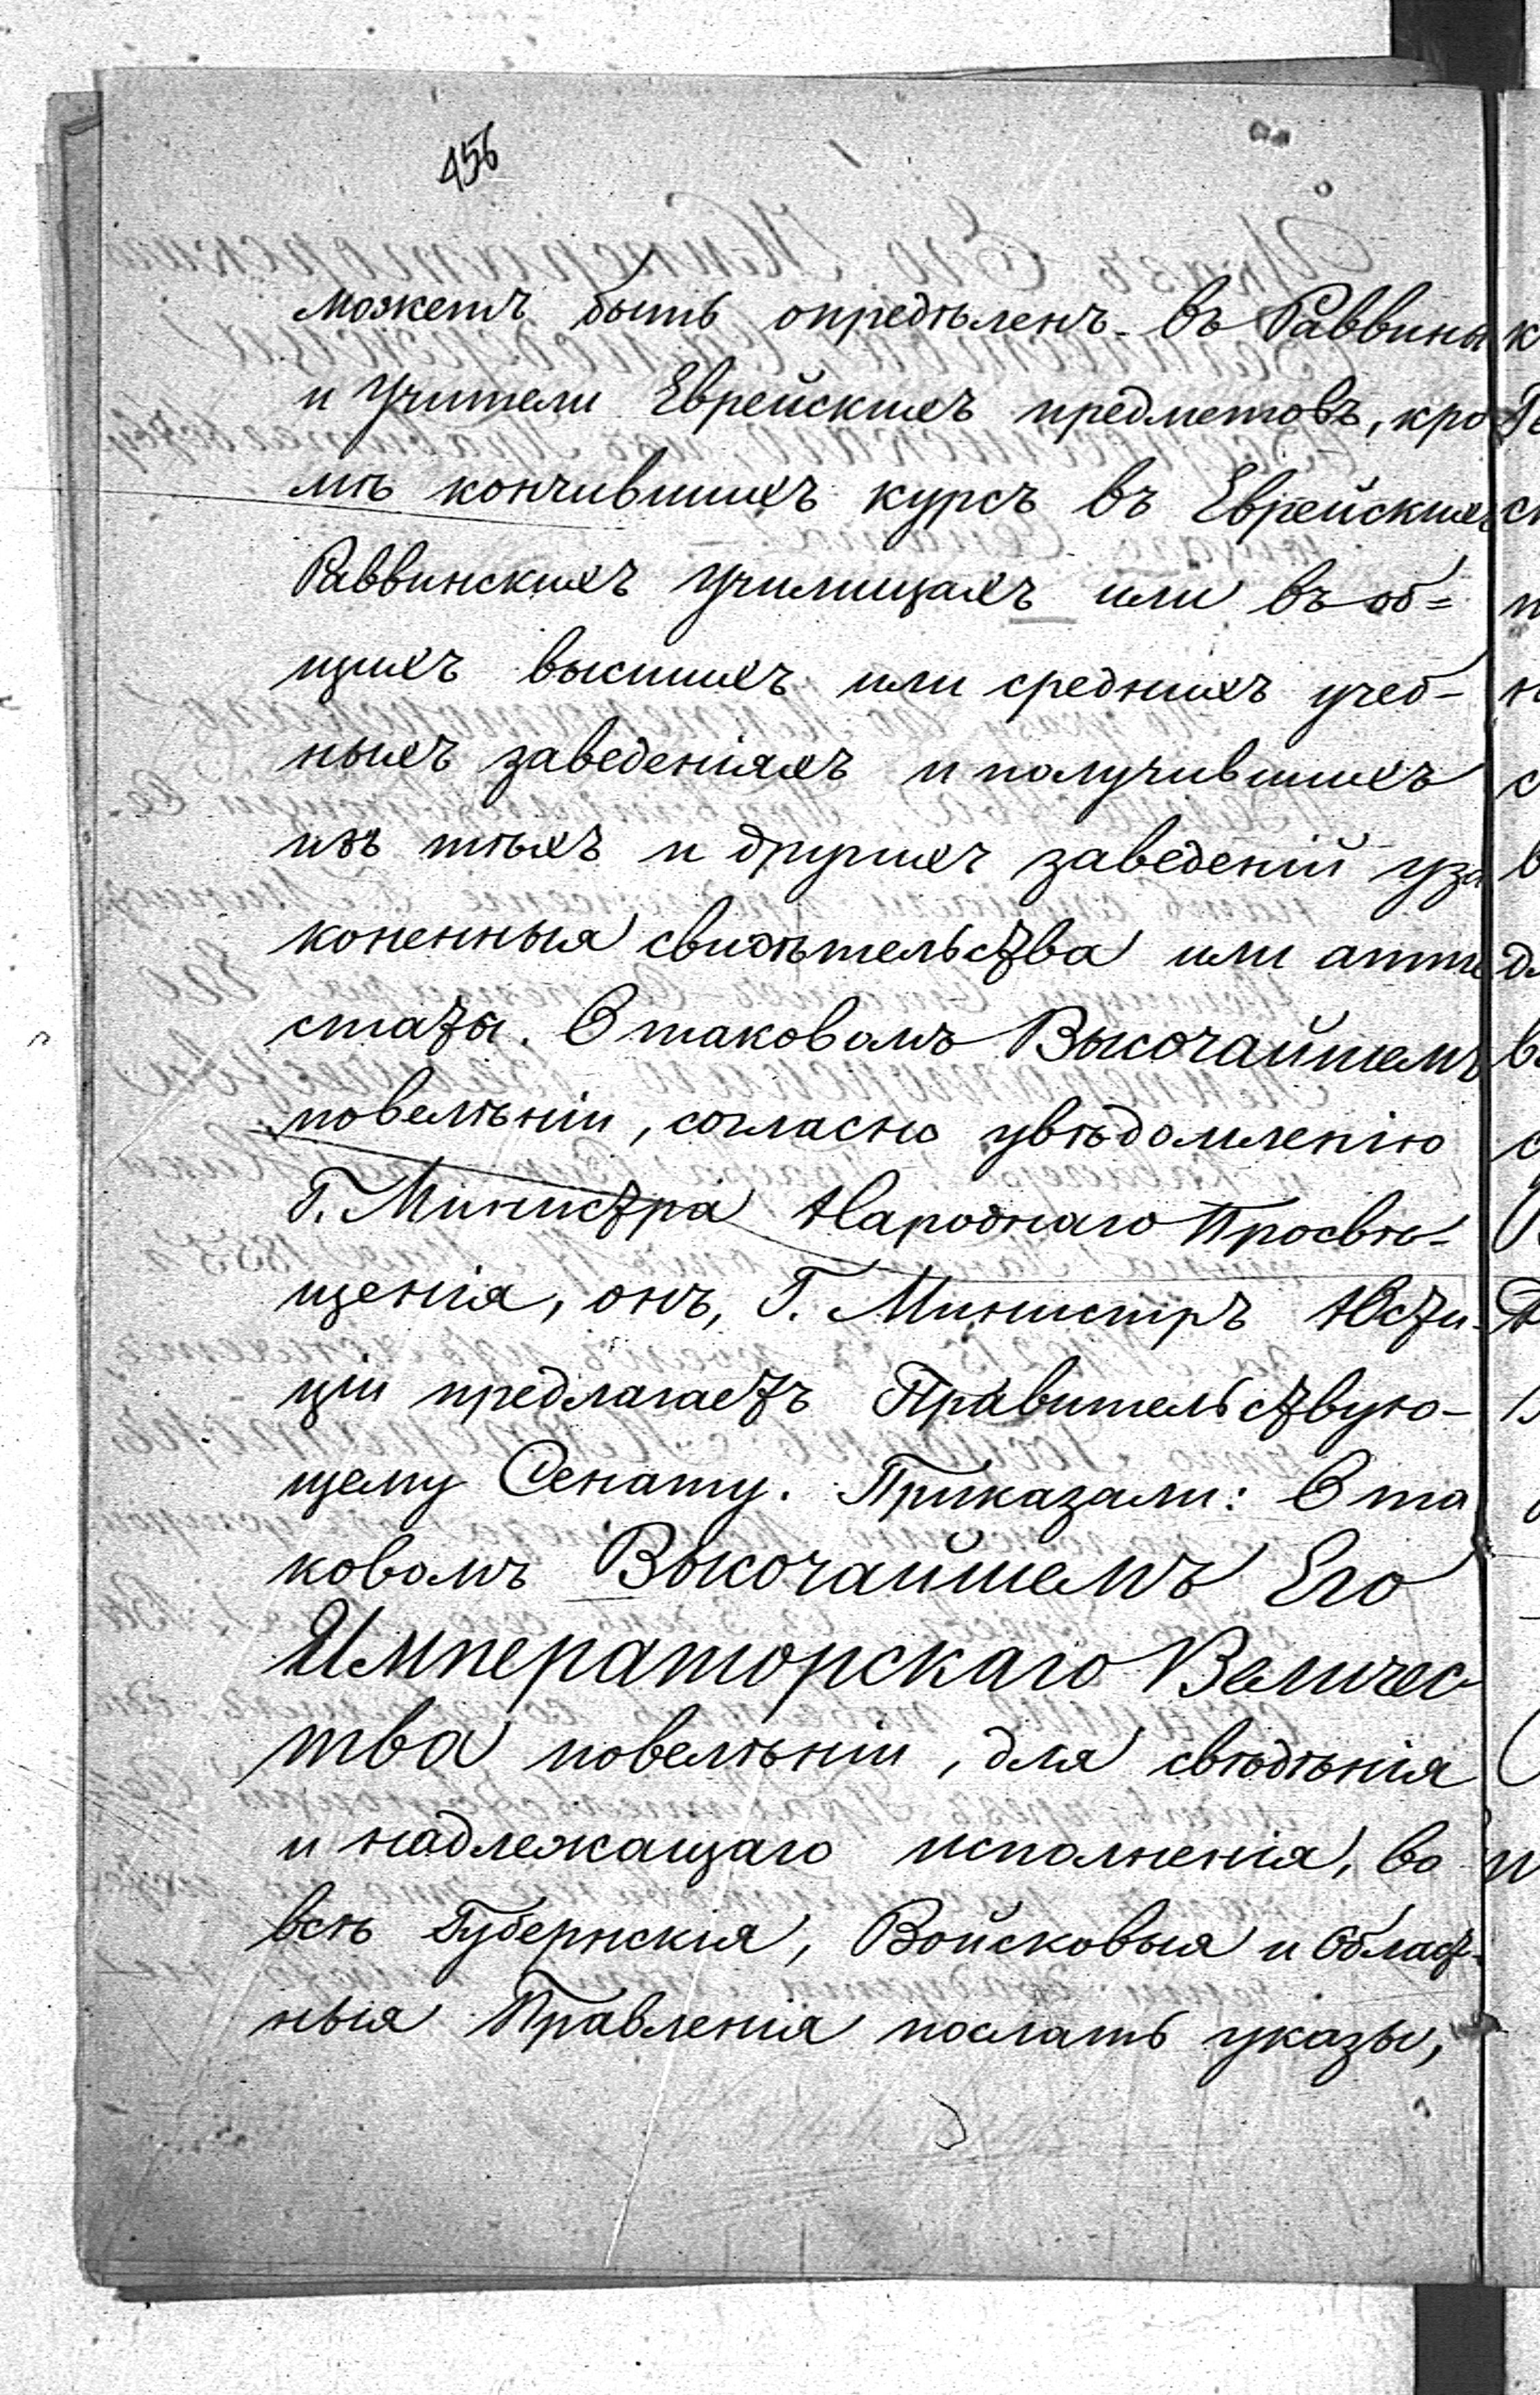 456
можетъ быть опредѣленъ въ Раввины
и Учители Еврейскихъ предметовъ, кро
мѣ кончившихъ курсъ въ Еврейскихъ
Раввинскихъ училищахъ или въ об=
щихъ высшихъ или среднихъ учеб-
ныхъ заведеніяхъ и получившихъ
изъ тѣхъ и другихъ заведеній уза
коненныя свидѣтельства или атте
статы. О таковомъ Высочайшемъ
повелѣніи, согласно увѣдомленію
Г. Министра Народнаго Просвѣ-
щенія, онъ, Г. Министръ Юсти-
ціи предлагаетъ Правительствую-
щему Сенату. Приказали: О та
ковомъ Высочайшемъ Его
Императорскаго Величес
тва повелѣніи, для свѣдѣнія
и надлежащаго исполненія, во
всѣ Губернскія, Войсковыя и Област-
ныя Правленія послать указы,